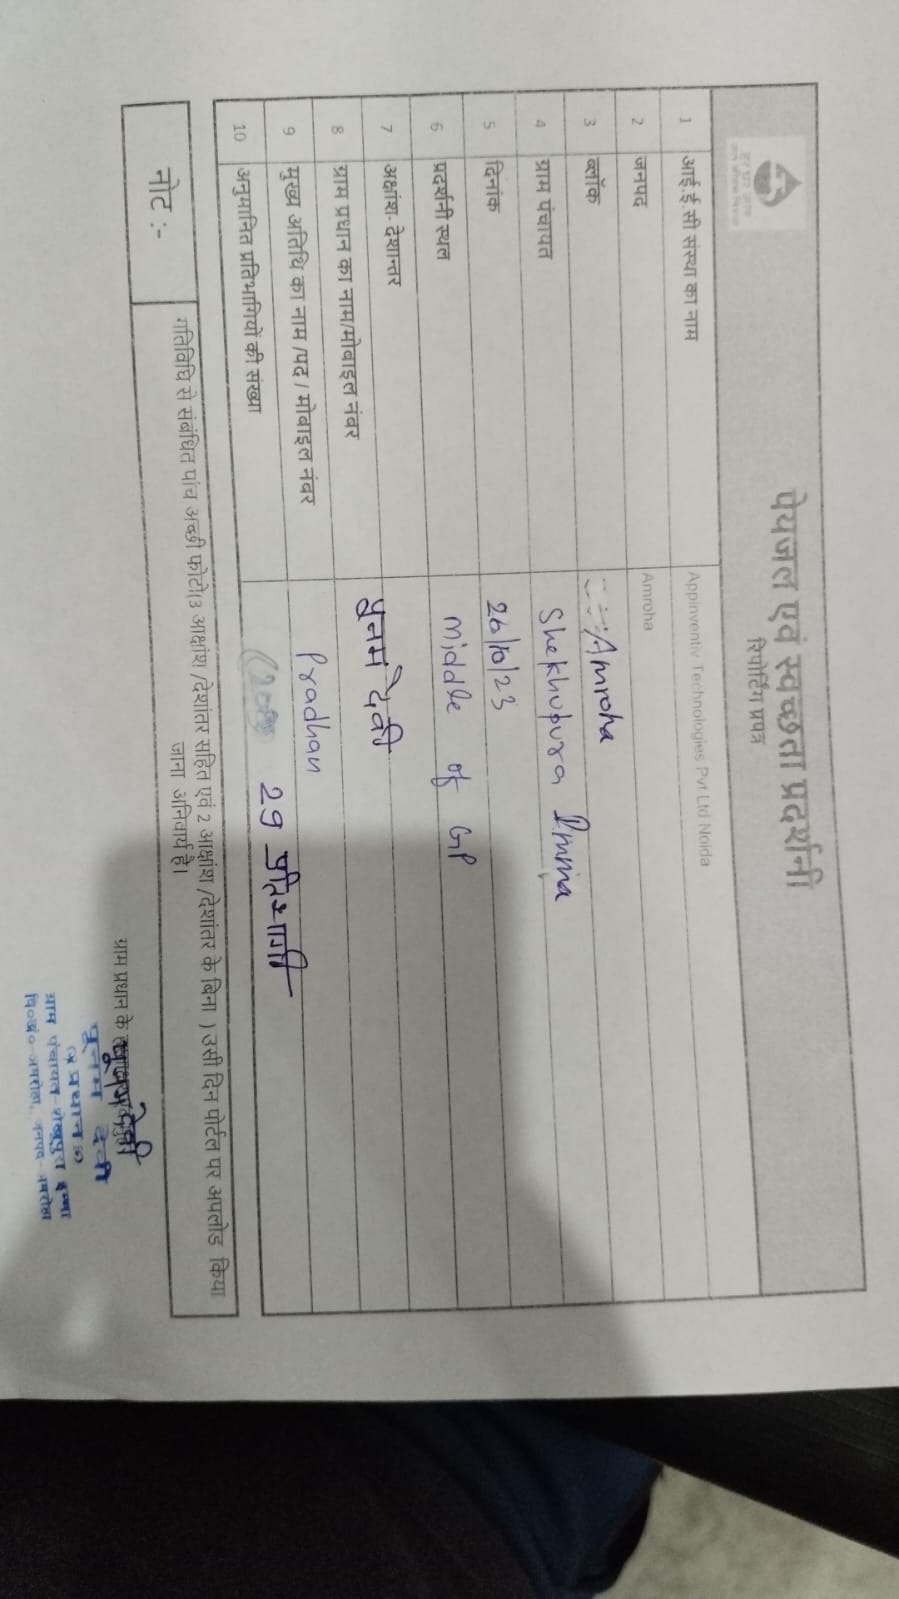 पेयजल एवं स्वच्छता प्रदर्शनी
रिपोर्टिंग प्रपत्र
1 आई.ई.सी संस्था का नाम Appinventiv Technologies Pvt Ltd Noida
2 जनपद Amroha
3 ब्लॉक Amroha
4 ग्राम पंचायत Shekhupura
5 दिनांक 26/10/23
6 प्रदर्शनी स्थल middle of GP
7 अक्षांश- देशान्तर
8 ग्राम प्रधान का नाम/मोबाइल नंबर पुनम देवी
9 मुख्य अतिथि का नाम /पद / मोबाइल नंबर Pradhan
10 अनुमानित प्रतिभागियों की संख्या 29
नोट :-
गतिविधि से संबंधित पांच अच्छी फोटो(3 आक्षांश /देशांतर सहित एवं 2 आक्षांश /देशांतर के बिना ) उसी दिन पोर्टल पर अपलोड किया
जाना अनिवार्य है।
ग्राम प्रधान के
पूनम देवी
पूनम देवी
प्रधान
ग्राम पंचायत-शेखुपुरा इम्मा
वि०ख०-अमरोहा, जनपद-अमरोहा